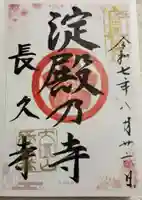 令和七年八月廿二日
淀殿乃寺
長久寺